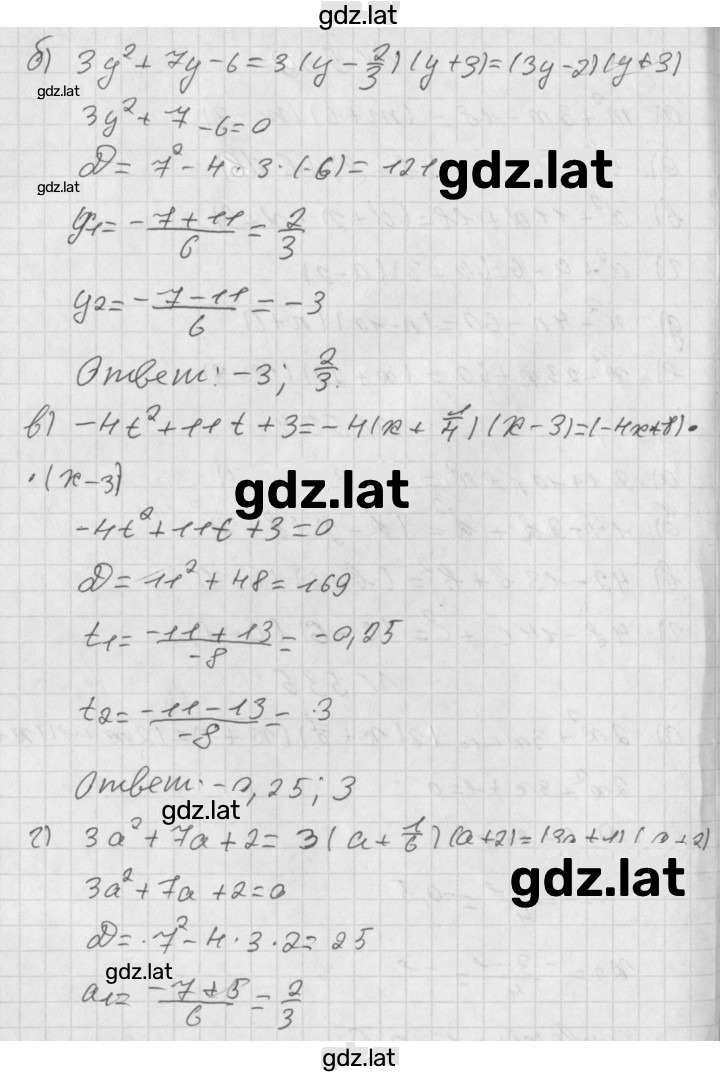 gdz.lat
б) 3y² + 7y - 6 = 3 (y - 2/3) (y + 3) = (3y - 2) (y + 3)
gdz.lat
3y² + 7 - 6 = 0
D = 7² - 4 · 3 · (-6) = 121
gdz.lat
gdz.lat
y1 = -7 + 11 / 6 = 2/3
y2 = -7 - 11 / 6 = -3
Ответ: -3; 2/3.
в) -4t² + 11t + 3 = -4 (x + 1/4) (x - 3) = (-4x+8) ·
· (x - 3)
gdz.lat
-4t² + 11t + 3 = 0
D = 11² + 48 = 169
t1 = -11 + 13 / -8 = -0,25
t2 = -11 - 13 / -8 = 3
Ответ: -0,25; 3
gdz.lat
г) 3a² + 7a + 2 = 3 (a + 1/6) (a + 2) = (3a + 1) (a + 2)
gdz.lat
3a² + 7a + 2 = 0
D = 7² - 4 · 3 · 2 = 25
gdz.lat
a1 = -7 + 5 / 6 = 2/3
gdz.lat